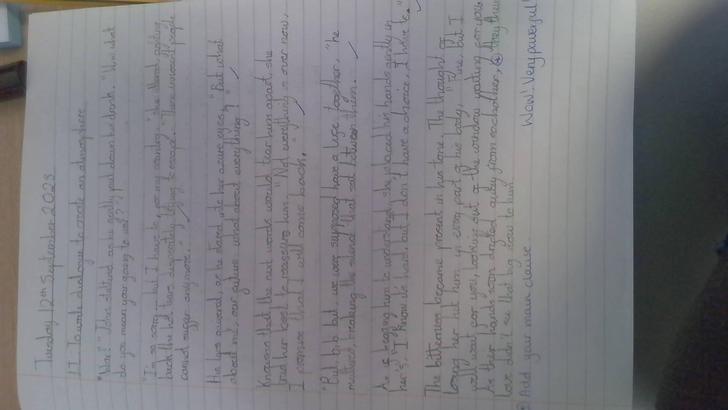 Tuesday 12th September 2023
LI To write dialogue to create an atmosphere
"Wait?" John stated as he gently put down his drink. "Um what
do you mean your going to war?"
"I'm so sorry but I have to for my country." she stared,
back the hot tears desperately trying to reach. "These innocent people
cannot suffer anymore."
His lips quivered, as he stared into her azure eyes, "But what
about me, our future what about everything?"
Knowing that the next words would tear him apart, she
tried her best to reassure him. "Not everything is over now,
I promise that I will come back."
"But b-b but we were supposed have a life together," he
muttered, breaking the silence that sat between them.
As if begging him to understand, she placed his hands gently in
her's. "I know its hard but I don't have a choice, I have to."
The bitterness became present in his tone. The thought of
losing her hit him in every part of his body. "Fine, but I
will wait for you, looking out of the window waiting for you
As their hands soon drifted away from eachother, they
love didn't see that big blow to him
Add your main clause
Wow! Very powerful!